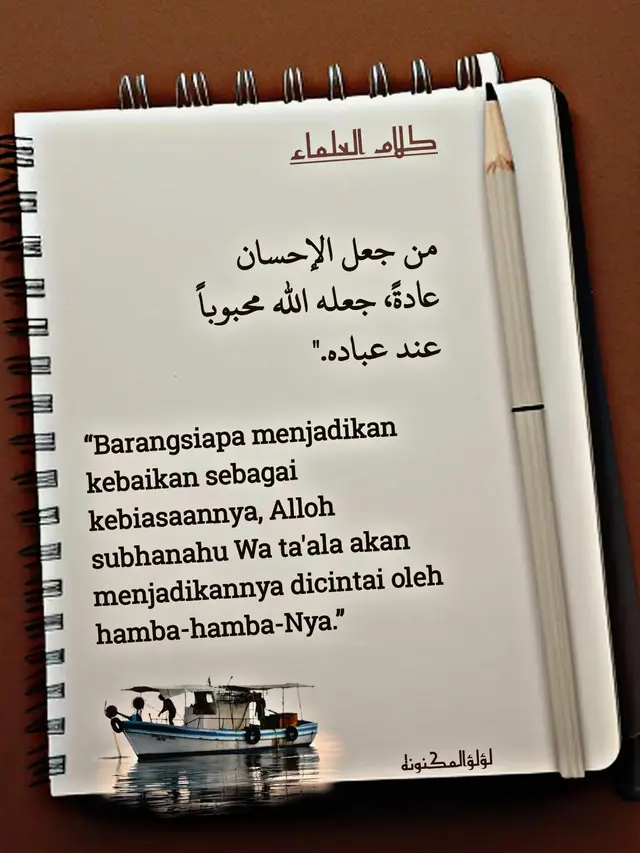 كلام العلماء
من جعل الإحسان
عادةً، جعله الله محبوباً
عند عباده."
“Barangsiapa menjadikan
kebaikan sebagai
kebiasaannya, Alloh
subhanahu Wa ta'ala akan
menjadikannya dicintai oleh
hamba-hamba-Nya.”
لؤلؤالمكنونة